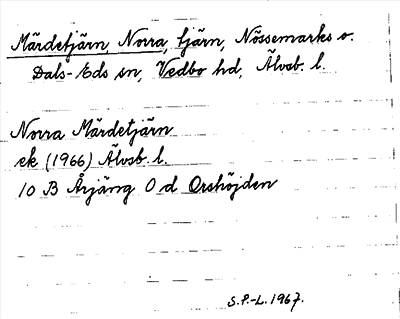 Märdetjärn, Norra, tjärn, Nössemarks o.
Dals-Eds sn, Vedbo hd, Älvsb. l.
Norra Märdetjärn
ek (1966) Älvsb. l.
10 B Årjäng O d Orshöjden
S.P.-L. 1967.